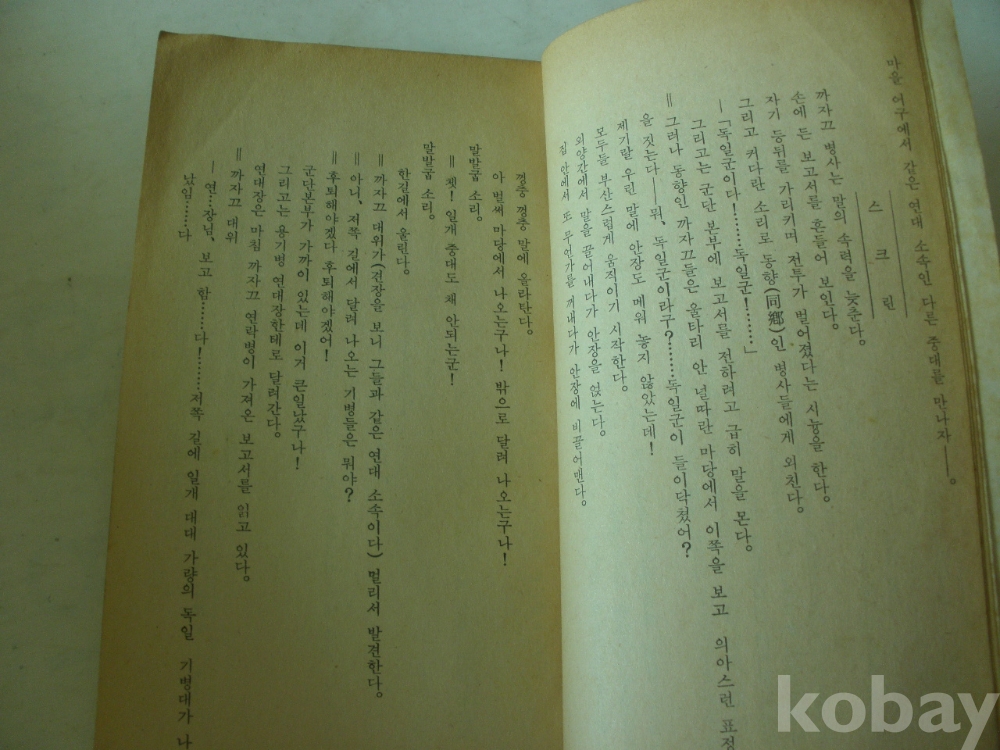 마을 어구에서 같은 연대 소속인 다른 중대를 만나자──。
스크린
까자끄 병사는 말의 속력을 늦춘다。
손에 든 보고서를 흔들어 보인다。
자기 등뒤를 가리키며 전투가 벌어졌다는 시늉을 한다。
그리고 커다란 소리로 동향(同鄕)인 병사들에게 외친다。
―「독일군이다!……독일군!……」
그리고는 군단 본부에 보고서를 전하려고 급히 말을 몬다。
‖ 그러나 동향인 까자끄들은 울타리 안 널따란 마당에서 이쪽을 보고 의아스런 표정
을 짓는다――뭐、독일군이라구?……독일군이 들이닥쳤어?
제기랄 우린 말에 안장도 메워 놓지 않았는데!
모두들 부산스럽게 움직이기 시작한다。
외양간에서 말을 끌어내다가 안장을 얹는다。
집 안에서 또 무언가를 꺼내다가 안장에 비끌어맨다。
껑충 껑충 말에 올라탄다。
아 벌써 마당에서 나오는구나! 밖으로 달려 나오는구나!
말발굽 소리。
‖ 쳇! 일개 중대도 채 안되는군!
말발굽 소리。
한길에서 울린다。
‖ 까자끄 대위가(견장을 보니 그들과 같은 연대 소속이다) 멀리서 발견한다。
‖ 아니、저쪽 길에서 달려 나오는 기병들은 뭐야?
‖ 후퇴해야겠다 후퇴해야겠어!
군단본부가 가까이 있는데 이거 큰일났구나!
그리고는 용기병 연대장한테로 달려간다。
연대장은 마침 까자끄 연락병이 가져온 보고서를 읽고 있다。
‖ 까자끄 대위
― 연…장님、보고 함……다!……저쪽 길에 일개 대대 가량의 독일 기병대가 나
났임……다
kobay